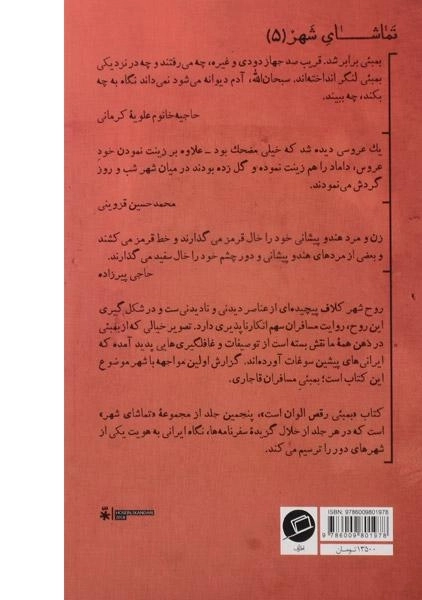 تماشای شهر (۵)
بمبئی برابر شد. قریب صد جهاز دودی و غیره، چه می‌رفتند و چه در نزدیکی
بمبئی لنگر انداخته‌اند. سبحان‌الله، آدم دیوانه می‌شود نمی‌داند نگاه به چه
بکند، چه ببیند.
حاجیه خانوم علویهٔ کرمانی
یك عروسی دیده شد که خیلی مضحك بود ــ علاوه بر زینت نمودن خودِ
عروس، داماد را هم زینت نموده و گل زده بودند در میان شهر شب و روز
گردش می‌نمودند.
محمدحسین قزوینی
زن و مرد هندو پیشانی خود را خال قرمز می‌گذارند و خط قرمز می‌کشند
و بعضی از مردهای هندو پیشانی و دور چشم خود را خال سفید می‌گذارند.
حاجی پیرزاده
روح شهر کلاف پیچیده‌ای از عناصر دیدنی و نادیدنی‌ست و در شکل‌گیری
این روح، روایت مسافران سهم انکارناپذیری دارد. تصویر خیالی که از بمبئی
در ذهن همهٔ ما نقش بسته است از توصیفات و غافلگیری‌هایی پدید آمده که
ایرانی‌های پیشین سوغات آورده‌اند. گزارش اولین مواجهه با شهر موضوع
این کتاب است؛ بمبئیِ مسافران قاجاری.
کتاب «بمبئی رقص الوان است»، پنجمین جلد از مجموعهٔ «تماشای شهر»
است که در هر جلد از خلال گزیدهٔ سفرنامه‌ها، نگاه ایرانی به هویت یکی از
شهرهای دور را ترسیم می‌کند.
HOSEIN ESKANDARI
ISBN: 9786009801978
9 786009 801978
۱۳۵۰۰ تومان
اطراف